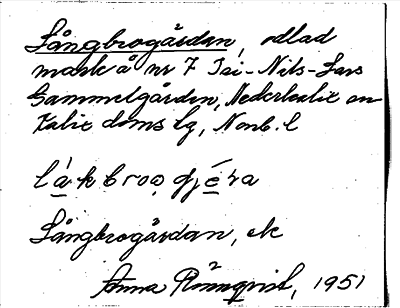 Långbrogårdan, odlad
mark å nr 7 Isi-Nils-Lars
Gammelgården, Nederkalix en
Kalix doms lg, Norrb. l
lákbroo gjéra
Långbrogårdan, ek
Anna Rönnqvist, 1951